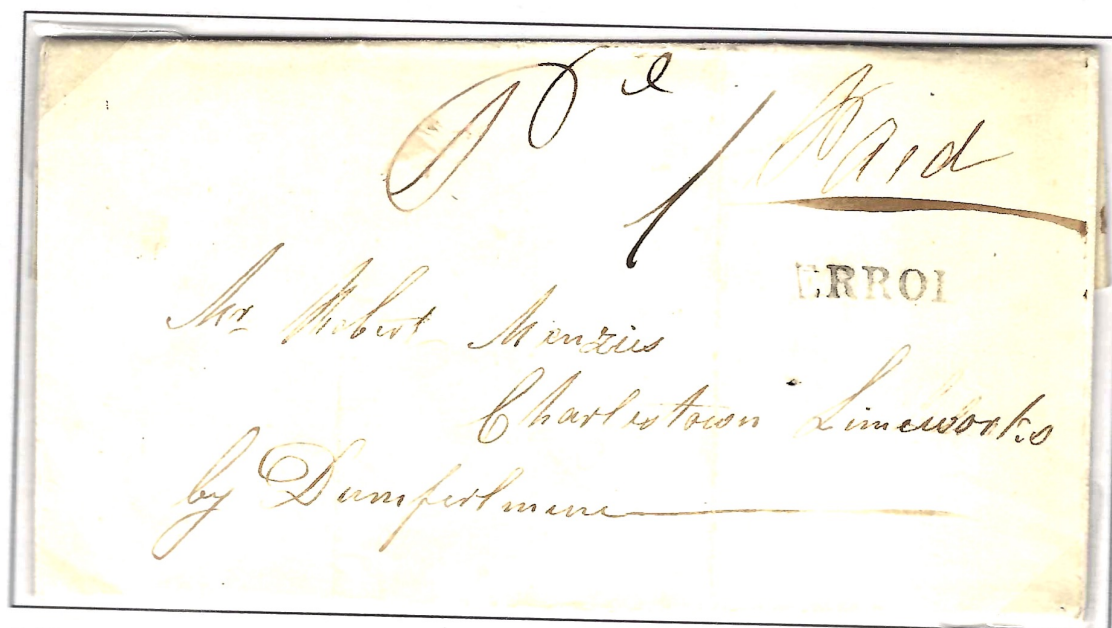 Pd
1
Paid
ERROL
Mr Robert Menzies
Charlestown Limeworks
by Dumfermline